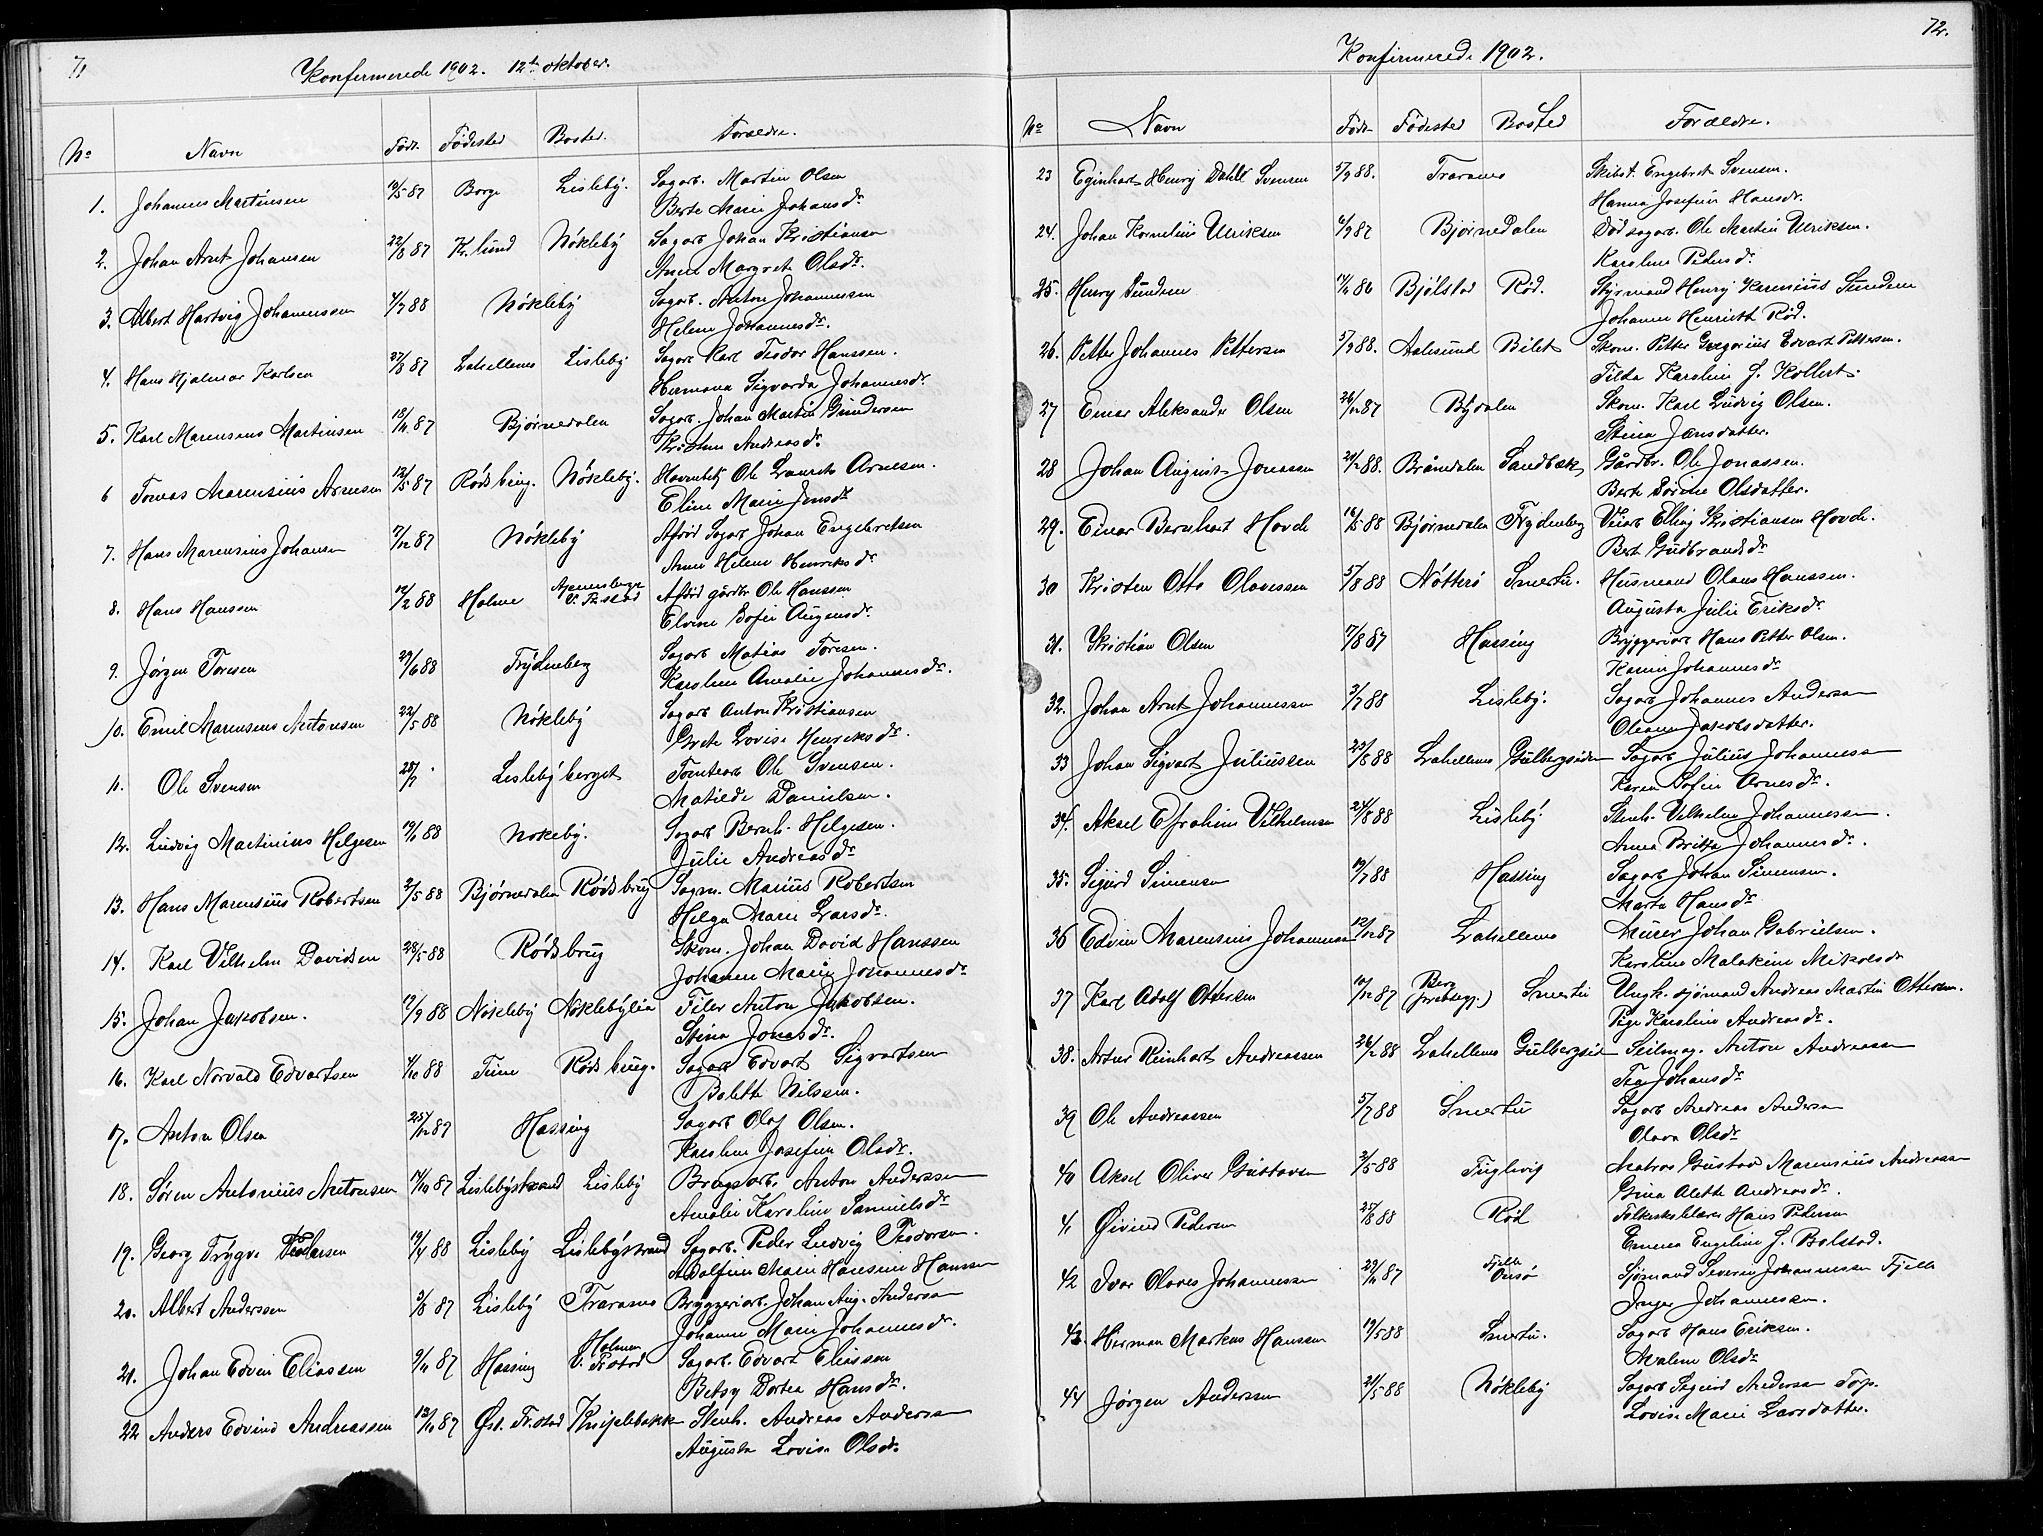 71
Konfermerede 1902. 12te oktober.
No Navn Født. Fødested Bosted. Forældre.
1. Johannes Martinsen 87 Borge Lisleby. Sagarb. Martin Olsen
Berte Marie Johansdr.
2. Johan Arnt Johansen 22/8 87 Kr. lund Nökleby Sagarb Johan Kristiansen
Anne Margrete Olsdr.
3. Albert Hartvig Johannssen 4/7 88 Nökleby Sagarb. Anton Johannessen
Helene Johannesdr.
4. Hans Hjalmar Karlsen 27/8 87 Lahellens Lisleby Sagarb Karl Teodor Hanssen.
Hermana Sigvarda Johannesdr.
5. Karl Marensius Martinsen 18/11 87 Bjørnedalen Sagarb. Johan Martin Gundersen
Kristine Andreasdr.
6 Tomas Marensius Arnesen 87 Rødsbrug. Nökleby. Ole Laurits Arnesen.
Eline Marie Jensdr
7. Hans Marensius Johansen 7/12 87 Nökleby Afdød Sagarb Johan Engebretsen
Anne Helene Henriksdr
8. Hans Hanssen 12/2 88 Holme v. Fr.stad Afdød gårdbr Ole Hanssen
Elvine Sofie Augensdr.
9. Jørgen Toresen 29/6 88 Frydenberg Sagarb Matias Toresen.
Karoline Amalie Johannesdr.
10. Emil Marensius Antonsen 22/5 88 Nökleby Sagarb Anton Kristiansen
Grete Lovise Henriksdr.
11. Ole Svensen 28/7 Lislebyberget Tomtearb Ole Svensen.
Matilde Danielsen.
12. Ludvig Martinius Helgesen 88 Nökleby. Sagarb Bernh. Helgesen.
Julie Andreasdr
13. Hans Marensius Robertsen 2/5 88 Bjørnedalen Rødsbrug Sagm. Marius Robertsen
Helga Marie Larsdr.
14. Karl Vilhelm Davidsen 28/5 88 Rødsbrug Skom. Johan David Hanssen
Johanne Marie Johannesdr
15. Johan Jakobsen. 17/9 88 Nökleby Nöklebylia Filer Anton Jakobsen.
Stina Jonasdr.
16. Karl Norvald Edvartsen 4/10 88 Tune Rødsbrug. Sagarb Edvart Sigvartsen
Bolette Nilssen.
17. Anton Olsen 25/12 87 Hassing Sagarb Olaf Olsen.
Karoline Josefine Olsdr.
18. Søren Antonius Antonsen 14/10 87 Lislebystrand Lisleby Brugsarb. Anton Anderssen
Amalie Karoline Samuelsdr
19. Georg Trygve Pedersen 19/4 88 Lisleby Lislebystrand Sagarb. Peder Ludvig Teodorsen.
Adolfine Marie Hansine Hanssen
20. Albert Anderssen 3/8 87 Lisleby Traraveien Bryggeriarb. Johan Aug. Anderssen
Johanne Marie Johannesdr.
21. Johan Edvin Eliassen 9/11 87 Hassing Holmen v. Fr.stad Sagarb. Edvart Eliassen
Betsy Dortea Hansdr.
22 Anders Edvind Andreassen 13/10 87 Øst. Fr.stad Knipelbakk Stenh. Andreas Anderssen
Augusta Lovise Olsdr.
72.
Konfirmerede 1902.
No Navn Født Fødested Bosted Forældre.
23 Eginhart Henry Dahle Svensen 5/9 88. Skibst. Engebret Svensen.
Hanna Josefine Hansdr.
24. Johan Kornelius Ulriksen 6/9 87 Bjørnedalen Død sagarb. Ole Martin Ulriksen.
Karoline Pedersdr.
25. Henry Sundem 86 Bjølstad Rød. Styrmand Henry Karenius Sundem
Johanne Henriette Rød.
26. Petter Johannes Pettersen 5/9 88. Aalesund Bilet Skom. Petter Gregorius Edvart Pettersen.
Tilda Karoline f. Kollert.
27 Einar Aleksander Olsen 26/12 87 Bydalen Skom. Karl Ludvig Olsen.
Stina Jansdatter.
28 Johan August Jonassen 88. Brøndalen Sandbæk Gårdbr. Ole Jonassen.
Berte Sorine Olsdatter.
29. Einar Bernhart Hovde 16/5 88 Bjørnedalen Frydenberg Veiarb Elling Kristiansen Hovde.
Berte Gudbrandsdr
30 Kristen Otto Olavessen 5/8 88 Nötterö Smertu. Husmand Olaus Hanssen.
Augusta Julie Eriksdr.
31. Kristian Olsen 7/8 87 Hassing Bryggeriarb Hans Petter Olsen.
Karen Johannesdr
32. Johan Arnt Johannessen 3/7 88 Lisleby. Sagarb Johannes Anderssen
Oleane Jakobsdatter.
33 Johan Sigvart Juliussen 88 Lahellens Gulbergsiden Sagarb Julius Johannessen
Karen Sofie Arnesdr.
34. Aksel Efrahim Vilhelmsen 24/8 88 Lisleby Stenh. Vilhelm Johannessen.
Anna Britta Johannesdr.
35. Sigurd Simensen 19/7 88 Hassing Sagarb Johan Simensen.
Marte Hansdr
36 Edvin Marensius Johannessen 12/12 87 Lahellens Murer Johan Gabrielsen.
Karoline Malakine Mikalsdr
37 Karl Adolf Ottersen 10/12 87 Berg Smertu Ungk. sjømand Andreas Martin Ottersen.
Pige Karoline Andreasdr.
38. Artur Reinhart Andreassen 26/2 88 Lahellens Gulbergsid Seilmag. Anton Andreassen
Tea Johansdr
39 Ole Andreassen 5/7 88 Smertu Sagarb Andreas Andersen
Olava Olsdr
40 Aksel Oliver Gustavsen 2/5 88 Tuglevig Matros Gustav Marensius Andreassen
Gina Alette Andreasdr.
41 Øivind Pedersen 88 Rød Folkeskolelærer Hans Pedersen
Emma Engeline f. Bolstad.
42 Ivar Olaves Johannessen 29/11 87 Fjelle Onsø Sjømand Severin Johannessen Fjelle
Inger Johannessen.
43. Herman Markus Hanssen 19/5 88 Smertu. Sagarb Hans Eriksen.
Malene Olsdr
44 Jørgen Anderssen 21/5 88 Nökleby Sagarb Sigurd Anderssen Torp.
Lovise Marie Larsdatter.